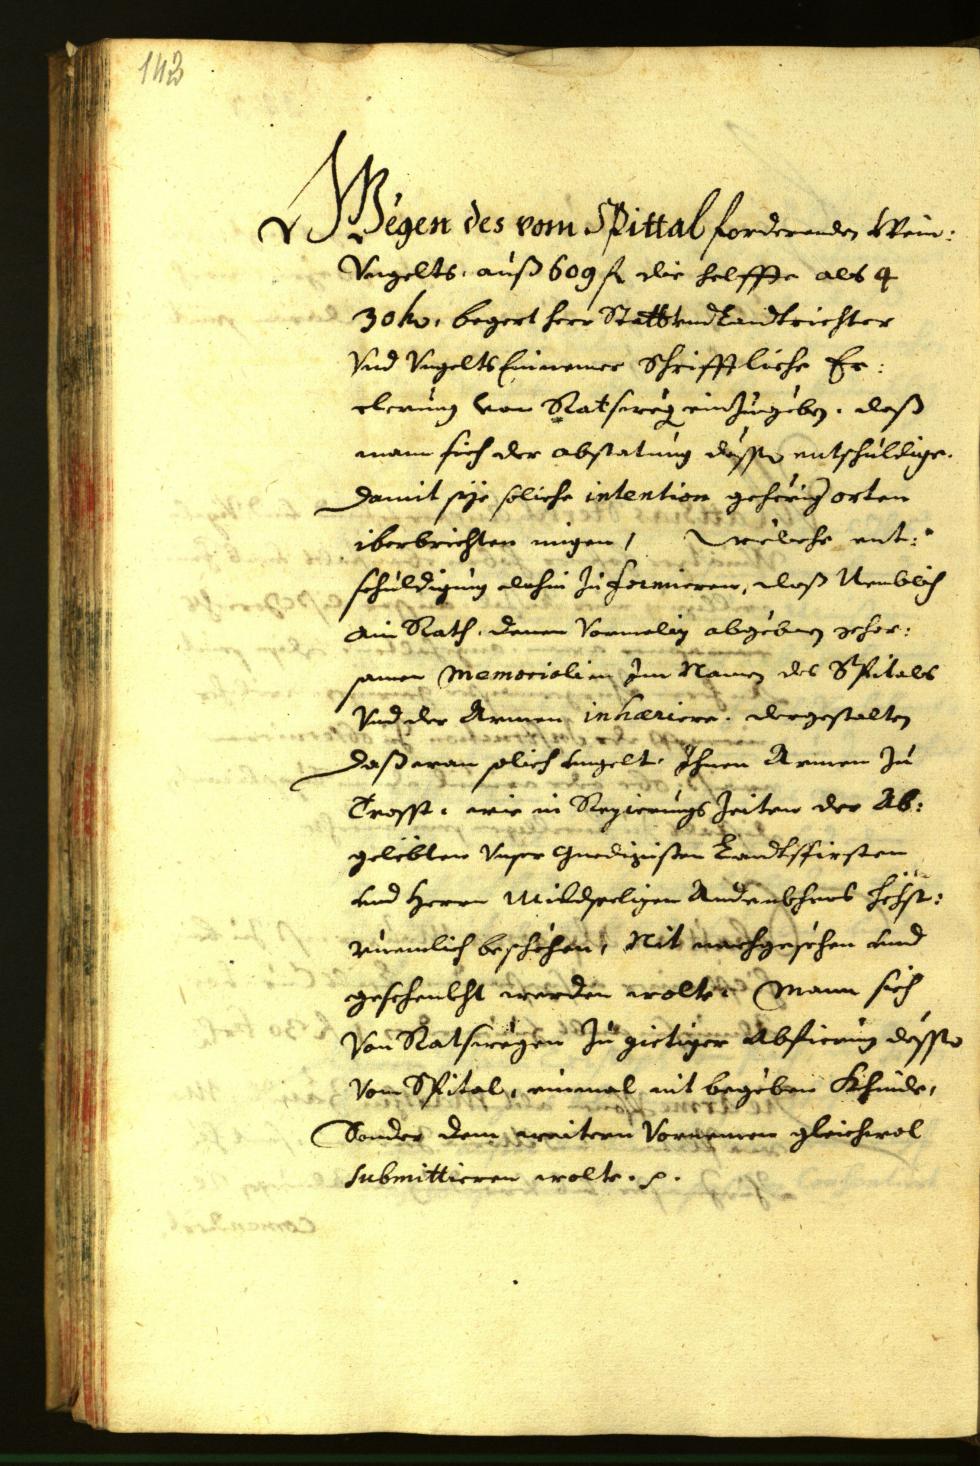 143
Wegen des vom Spittal forderenden Wein:
Vngelts, auß 609 fl die helffte als 4
30 kr, begert herr Statt vnd Landtrichter
Vnd Vngelts Einnemer Schrifftliche Er:
clerung von Rats weg einzugeben, daß
mann sich der abstatung dessen entschuldige.
Damit sÿe soliche intention gehörig orten
iberbrichten migen / Weliche ent:
schuldigung dahin zu formieren, daß Nemblich
ain Rath, denen Vormalig abgebnen gehor:
samen Memorialien Im Namen des Spitals
Vnd der Armen inhæriere. dergestalten
Daß wan solich vngelt, Ihnen Armen zu
Trosst, wie in Regierungs Zeiten der Ab:
gelebten Vnser Gnedigisten Landtsfirsten
vnd Herrn Mildseeligen Andenkhens höchst:
ruemlich beschehen, Nit nachgesehen vnd
geschenkht werden wolte, Mann sich
Von Rats wegen zu gietiger Abfierung dessen
Vom Spital, einmal nit begeben khinde,
Sonder dem weitern Vornemen gleichwol
submittieren wolte. p.